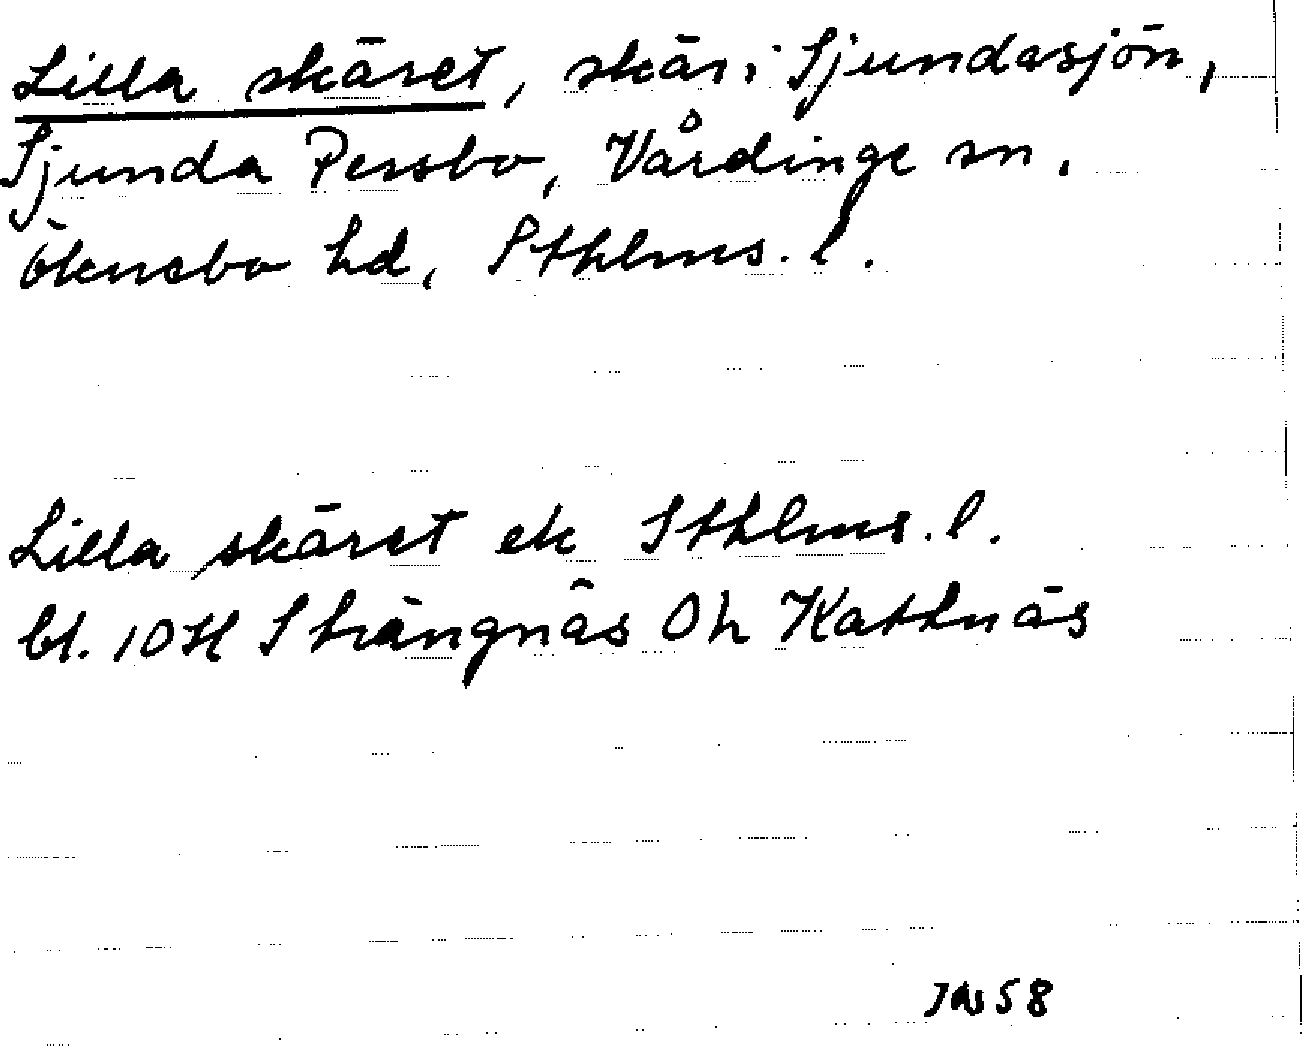 Lilla skäret, skär i Sjundasjön,
Sjunda Persbo, Vårdinge sn.
Öknebo hd, Sthlms. l.
Lilla skäret ek Sthlms. l.
bl. 10H Strängnäs 0h Kattnäs
58